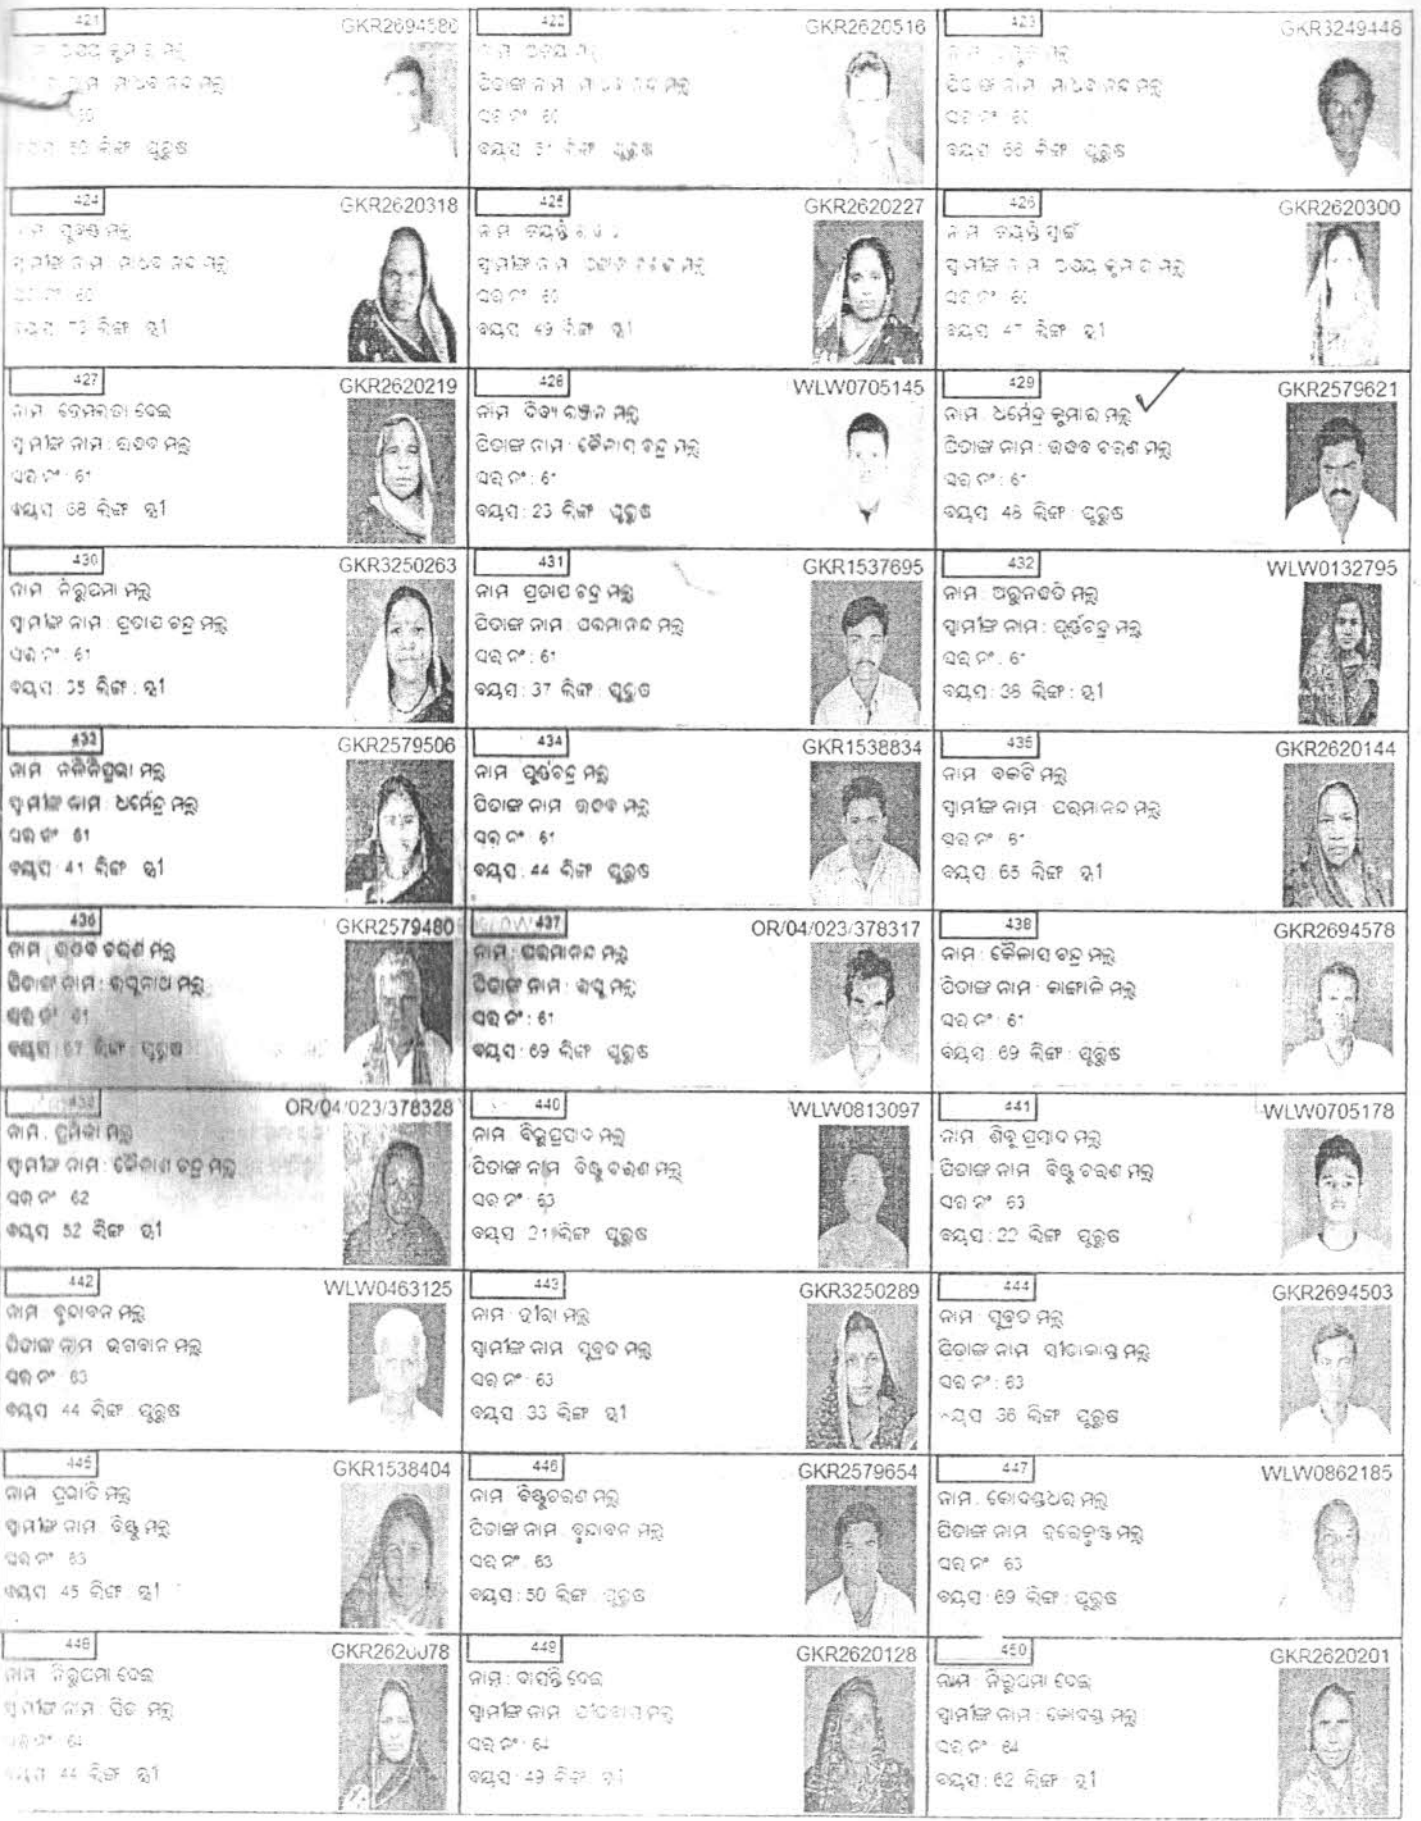 421 GKR2694586
ନାମ ମାଧବ ନନ୍ଦ ମଲ୍ଲ
60
ଲିଙ୍ଗ ପୁରୁଷ
422 GKR2620516
ପିତାଙ୍କ ନାମ ମାଧବ ନନ୍ଦ ମଲ୍ଲ
ଘର ନଂ 60
ବୟସ ଲିଙ୍ଗ ପୁରୁଷ
423 GKR3249448
ପିତାଙ୍କ ନାମ ମାଧବ ନନ୍ଦ ମଲ୍ଲ
ଘର ନଂ 60
ବୟସ ଲିଙ୍ଗ ପୁରୁଷ
424 GKR2620318
ମଲ୍ଲ
ସ୍ୱାମୀଙ୍କ ନାମ ମାଧବ ନନ୍ଦ ମଲ୍ଲ
ଘର ନଂ 60
ବୟସ 73 ଲିଙ୍ଗ ସ୍ତ୍ରୀ
425 GKR2620227
ନାମ ଜୟନ୍ତି
ସ୍ୱାମୀଙ୍କ ନାମ ମଲ୍ଲ
ଘର ନଂ 60
ବୟସ 49 ଲିଙ୍ଗ ସ୍ତ୍ରୀ
426 GKR2620300
ନାମ ଜୟନ୍ତି ସ୍ୱାଇଁ
ସ୍ୱାମୀଙ୍କ ନାମ କୁମାର ମଲ୍ଲ
ଘର ନଂ 60
ବୟସ 47 ଲିଙ୍ଗ ସ୍ତ୍ରୀ
427 GKR2620219
ନାମ ହେମଲତା ଦେଇ
ସ୍ୱାମୀଙ୍କ ନାମ : ଉଦ୍ଧବ ମଲ୍ଲ
ଘର ନଂ : 61
ବୟସ 68 ଲିଙ୍ଗ ସ୍ତ୍ରୀ
428 WLW0705145
ନାମ ଦିବ୍ୟ ରଞ୍ଜନ ମଲ୍ଲ
ପିତାଙ୍କ ନାମ : କୈଳାସ ଚନ୍ଦ୍ର ମଲ୍ଲ
ଘର ନଂ : 61
ବୟସ : 23 ଲିଙ୍ଗ ପୁରୁଷ
429 GKR2579621
ନାମ : ଧର୍ମେନ୍ଦ୍ର କୁମାର ମଲ୍ଲ
ପିତାଙ୍କ ନାମ : ଉଦ୍ଧବ ଚରଣ ମଲ୍ଲ
ଘର ନଂ : 61
ବୟସ ଲିଙ୍ଗ : ପୁରୁଷ
430 GKR3250263
ନାମ ନିରୁପମା ମଲ୍ଲ
ସ୍ୱାମୀଙ୍କ ନାମ : ପ୍ରତାପ ଚନ୍ଦ୍ର ମଲ୍ଲ
ଘର ନଂ : 61
ବୟସ : 35 ଲିଙ୍ଗ : ସ୍ତ୍ରୀ
431 GKR1537695
ନାମ ପ୍ରତାପ ଚନ୍ଦ୍ର ମଲ୍ଲ
ପିତାଙ୍କ ନାମ : ପରମାନନ୍ଦ ମଲ୍ଲ
ଘର ନଂ : 61
ବୟସ : 37 ଲିଙ୍ଗ : ପୁରୁଷ
432 WLW0132795
ନାମ : ଅରୁନ୍ଧତି ମଲ୍ଲ
ସ୍ୱାମୀଙ୍କ ନାମ : ପୂର୍ଣ୍ଣଚନ୍ଦ୍ର ମଲ୍ଲ
ଘର ନଂ : 61
ବୟସ : 38 ଲିଙ୍ଗ : ସ୍ତ୍ରୀ
433 GKR2579506
ନାମ ନଳିନିପ୍ରଭା ମଲ୍ଲ
ସ୍ୱାମୀଙ୍କ ନାମ : ଧର୍ମେନ୍ଦ୍ର ମଲ୍ଲ
ଘର ନଂ 61
ବୟସ : 41 ଲିଙ୍ଗ ସ୍ତ୍ରୀ
434 GKR1538834
ନାମ ପୂର୍ଣ୍ଣଚନ୍ଦ୍ର ମଲ୍ଲ
ପିତାଙ୍କ ନାମ ଉଦ୍ଧବ ମଲ୍ଲ
ଘର ନଂ : 61
ବୟସ : 44 ଲିଙ୍ଗ ପୁରୁଷ
435 GKR2620144
ନାମ ମଲ୍ଲ
ସ୍ୱାମୀଙ୍କ ନାମ ପରମାନନ୍ଦ ମଲ୍ଲ
ଘର ନଂ : 61
ବୟସ 65 ଲିଙ୍ଗ ସ୍ତ୍ରୀ
436 GKR2579480
ନାମ : ଉଦ୍ଧବ ଚରଣ ମଲ୍ଲ
ପିତାଙ୍କ ନାମ : ମଲ୍ଲ
ଘର ନଂ 61
ବୟସ : 67 ଲିଙ୍ଗ : ପୁରୁଷ
437 OR/04/023/378317
ନାମ : ପରମାନନ୍ଦ ମଲ୍ଲ
ପିତାଙ୍କ ନାମ : ମଲ୍ଲ
ଘର ନଂ : 61
ବୟସ : 69 ଲିଙ୍ଗ ପୁରୁଷ
438 GKR2694578
ନାମ : କୈଳାସ ଚନ୍ଦ୍ର ମଲ୍ଲ
ପିତାଙ୍କ ନାମ : କାଙ୍ଗାଳି ମଲ୍ଲ
ଘର ନଂ : 61
ବୟସ : 69 ଲିଙ୍ଗ : ପୁରୁଷ
OR/04/023/378328
ନାମ : ପ୍ରମିଳା ମଲ୍ଲ
ସ୍ୱାମୀଙ୍କ ନାମ : କୈଳାଶ ଚନ୍ଦ୍ର ମଲ୍ଲ
ଘର ନଂ 62
ବୟସ 52 ଲିଙ୍ଗ ସ୍ତ୍ରୀ
440 WLW0813097
ନାମ ବିଷ୍ଣୁପ୍ରସାଦ ମଲ୍ଲ
ପିତାଙ୍କ ନାମ ବିଷ୍ଣୁ ଚରଣ ମଲ୍ଲ
ଘର ନଂ : 63
ବୟସ 21 ଲିଙ୍ଗ ପୁରୁଷ
441 WLW0705178
ନାମ ଶିବୁ ପ୍ରସାଦ ମଲ୍ଲ
ପିତାଙ୍କ ନାମ ବିଷ୍ଣୁ ଚରଣ ମଲ୍ଲ
ଘର ନଂ 63
ବୟସ : 22 ଲିଙ୍ଗ ପୁରୁଷ
442 WLW0463125
ନାମ ବୃନ୍ଦାବନ ମଲ୍ଲ
ପିତାଙ୍କ ନାମ ଭଗବାନ ମଲ୍ଲ
ଘର ନଂ 63
ବୟସ 44 ଲିଙ୍ଗ ପୁରୁଷ
443 GKR3250289
ନାମ : ହୀରା ମଲ୍ଲ
ସ୍ୱାମୀଙ୍କ ନାମ ସୁବ୍ରତ ମଲ୍ଲ
ଘର ନଂ : 63
ବୟସ : 33 ଲିଙ୍ଗ ସ୍ତ୍ରୀ
444 GKR2694503
ନାମ : ସୁବ୍ରତ ମଲ୍ଲ
ପିତାଙ୍କ ନାମ ସୀତାକାନ୍ତ ମଲ୍ଲ
ଘର ନଂ : 63
ବୟସ 38 ଲିଙ୍ଗ ପୁରୁଷ
445 GKR1538404
ନାମ ପ୍ରଭାତି ମଲ୍ଲ
ସ୍ୱାମୀଙ୍କ ନାମ : ବିଷ୍ଣୁ ମଲ୍ଲ
ଘର ନଂ 63
ବୟସ 45 ଲିଙ୍ଗ ସ୍ତ୍ରୀ
446 GKR2579654
ନାମ ବିଷ୍ଣୁଚରଣ ମଲ୍ଲ
ପିତାଙ୍କ ନାମ : ବୃନ୍ଦାବନ ମଲ୍ଲ
ଘର ନଂ : 63
ବୟସ : 50 ଲିଙ୍ଗ : ପୁରୁଷ
447 WLW0862185
ନାମ : କୋଦଣ୍ଡଧର ମଲ୍ଲ
ପିତାଙ୍କ ନାମ ହରେକୃଷ୍ଣ ମଲ୍ଲ
ଘର ନଂ 63
ବୟସ : 69 ଲିଙ୍ଗ : ପୁରୁଷ
448
ନାମ ନିରୁପମା ଦେଇ
ସ୍ୱାମୀଙ୍କ ନାମ ମଲ୍ଲ
ଘର ନଂ : 64
ବୟସ 44 ଲିଙ୍ଗ ସ୍ତ୍ରୀ
449 GKR2620128
ନାମ : ବାସନ୍ତି ଦେଇ
ସ୍ୱାମୀଙ୍କ ନାମ ମଲ୍ଲ
ଘର ନଂ : 64
ବୟସ : 49 ଲିଙ୍ଗ ସ୍ତ୍ରୀ
450 GKR2620201
ନାମ ନିରୁପମା ଦେଇ
ସ୍ୱାମୀଙ୍କ ନାମ : କୋଦଣ୍ଡ ମଲ୍ଲ
ଘର ନଂ 64
ବୟସ : 62 ଲିଙ୍ଗ : ସ୍ତ୍ରୀ